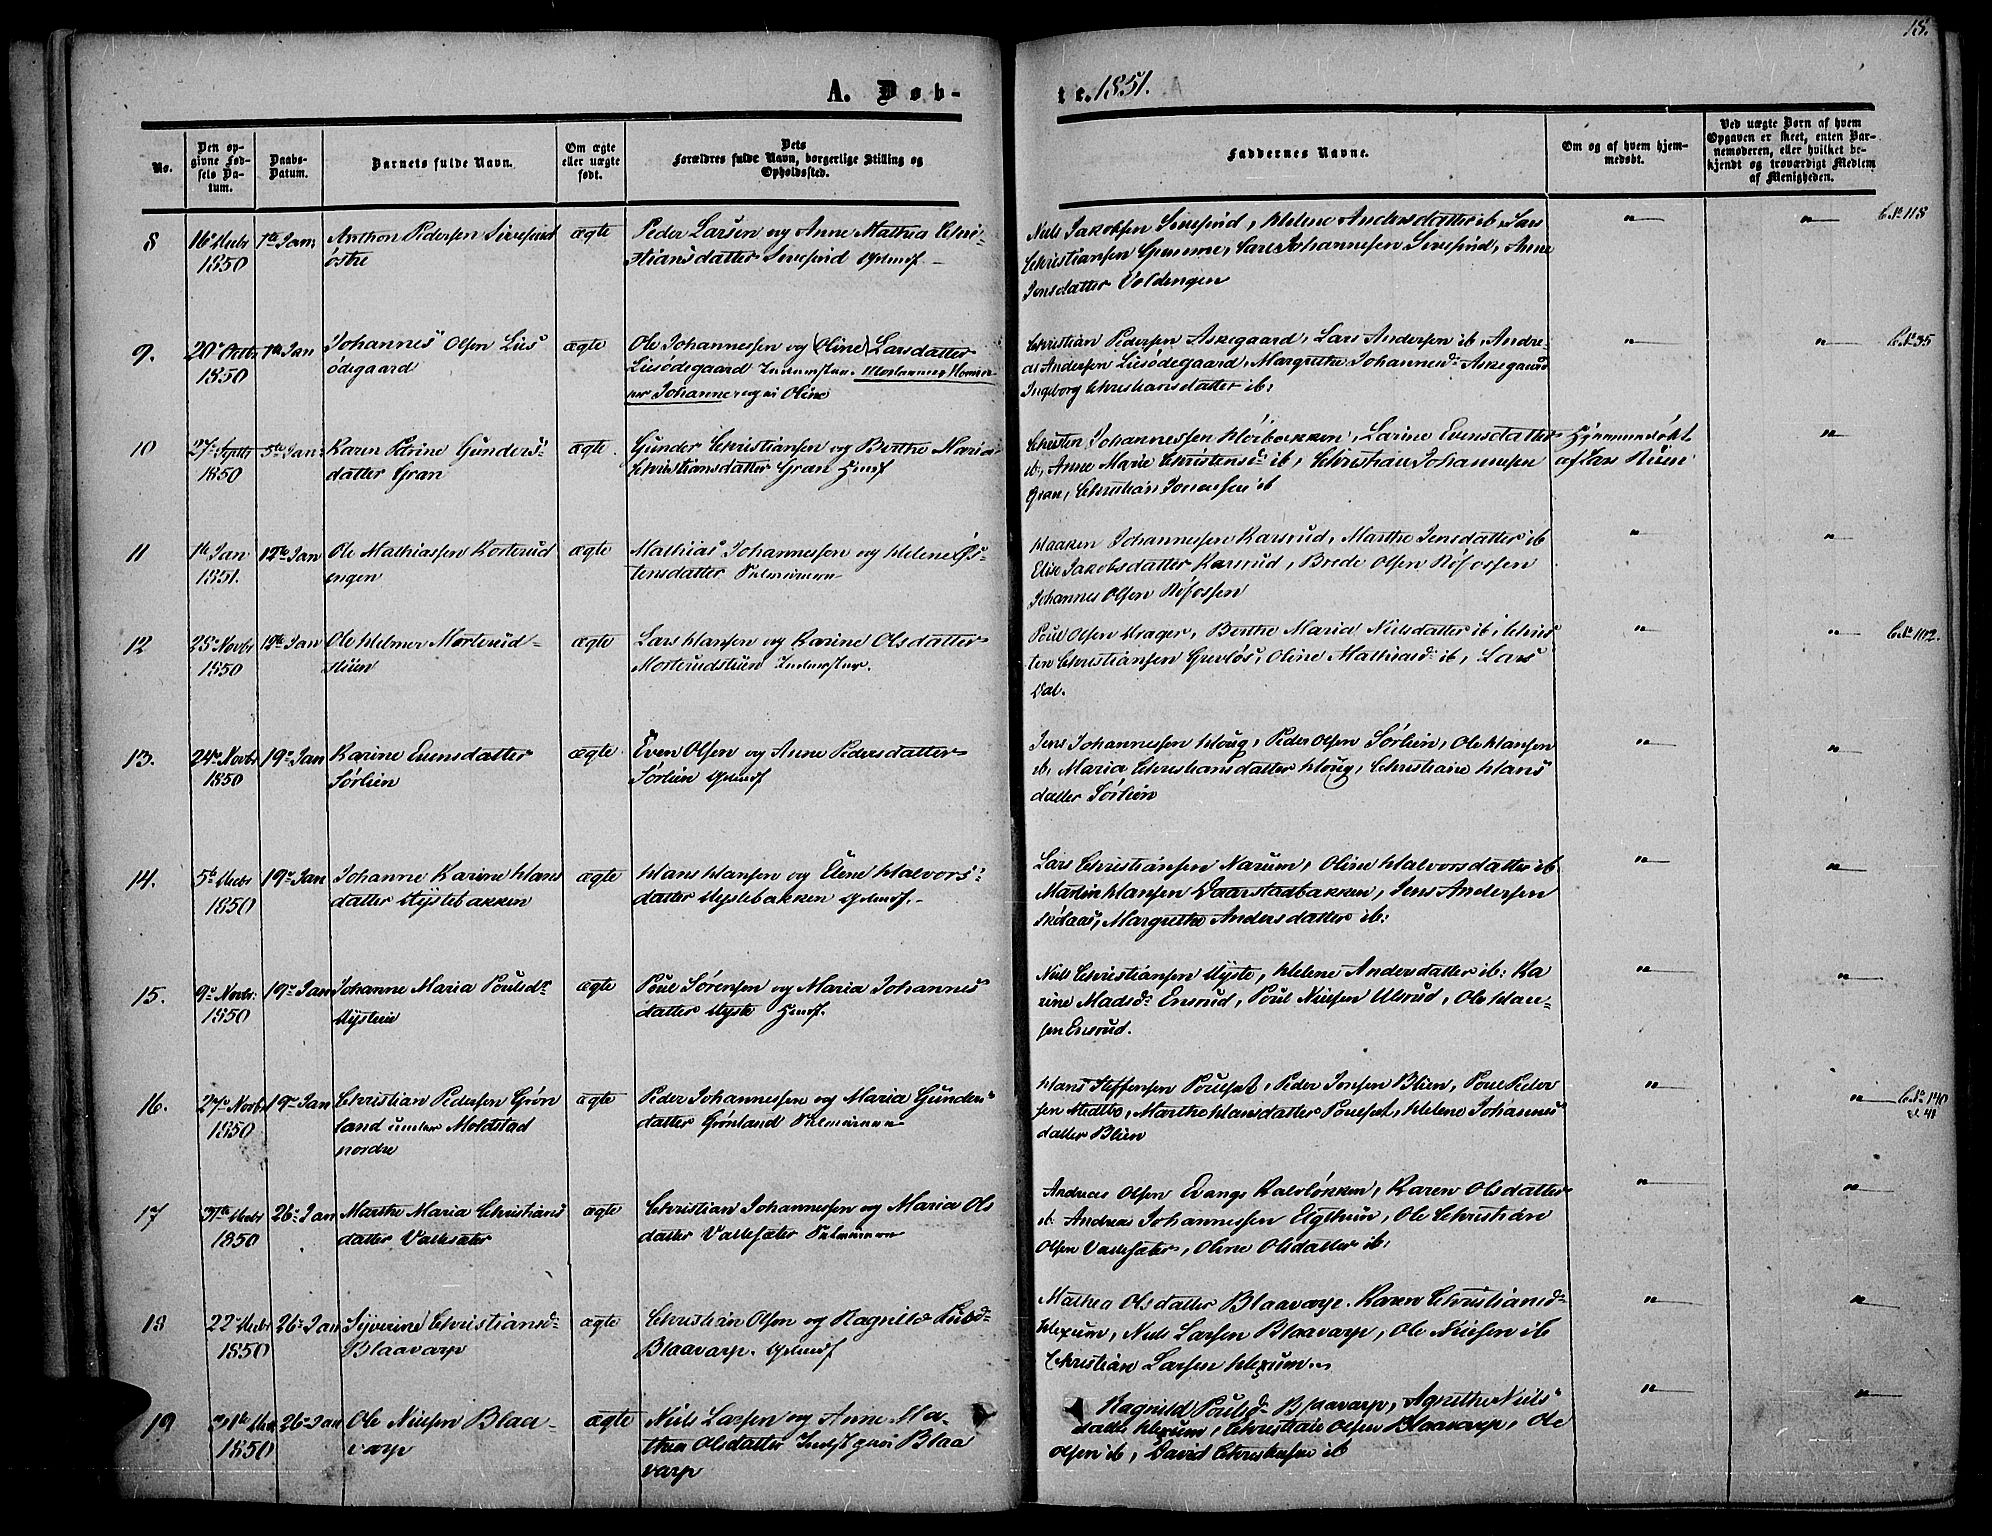 18.
A. Døb-
te. 1851.
No.
Den op-
givne Fød-
sels Da-
tum.
Daabs-
Datum.
Barnets fulde Navn.
Om ægte
eller uægte
født.
Dets
Forældres fulde Navn, borgerlige Stilling og
Opholdssted.
Faddernes Navne.
Om og af hvem hjem-
medøbt.
Ved uægte Børn af hvem
Opgaven er skeet, enten Bar-
nemoderen, eller hvilket be-
kjendt og troværdigt Medlem
af Menigheden.
8
16 Decbr
1850
1te Jan
Anthon Pedersen Sivesind
østre
ægte
Peder Larsen og Anne Mathia Chri-
stiansdatter Sivesind Gdmdf
Niels Jakobsen Sivesind, Helene Andersdatter ib, Lars
Christiansen, Lars Johannesen Sivesind, Anne
Jensdatter Voldengen
C No 118
9.
20 Octbr
1850
1te Jan
Johannes Olsen Lies
ødegaard
ægte
Ole Johannessen og (Oline) Larsdatter
Liesødegaard Inderster. Moderens
Johanne og ei Oline
Christian Pedersen Askegaard, Lars Andersen ib, Andre-
as Andersen Liesødegaard, Margrethe Johannesd. Askegaard
Ingeborg Christiansdatter ib:
C No 35
10
27 Septbr
1850
5te Jan
Karen Petrine Gunders
datter Gran
ægte
Gunder Christiansen og Berthe Maria
Christiansdatter Gran Hmdf
Christen Johannessen Høibakken, Larine Evensdatter
ib, Anne Marie Christensd. ib, Christian Johannesen
Gran, Christian ib
Hjemmedøbt
af Lars
11
1te Jan
1851.
12te Jan
Ole Mathiassen Korterud
engen
ægte
Mathias Johannessen og Helene Øs-
tensdatter Pulmemenn
Haaken Johannessen Karsrud, Marthe Jensdatter ib
Elise Jakobsdatter Karsrud, Brede Olsen Røfossen
Johannes Olsen Røfossen
12
25 Novbr
1850
12te Jan
Ole Helmer Morterud-
stuen
ægte
Lars Hansen og Karine Olsdatter
Morterudstuen Inderster.
Poul Olsen Krager, Berthe Maria Nielsdatter ib, Chris
ten Christiansen Grevløs, Oline Mathiasd. ib, Lars
Dal.
C No 102.
13.
24 Novbr
1850
19 Jan
Karine Evensdatter
Sørlien
ægte
Even Olsen og Anne Pedersdatter
Sørlien Gdmdf
Jens Johannessen Houg, Peder Olsen Sørlien, Ole Hansen
ib, Maria Christiansdatter Houg, Christiane Hans
datter Sørlien
14.
5 Decbr
1850
19 Jan
Johanne Karine Hans
datter Hystebakken
ægte
Hans Hansen og Elene Halvors
datter Hystebakken Gdmdf.
Lars Christiansen Narum, Oline Halvorsdatter ib
Martin Hansen Daarstadbakken, Jens Andersen
Skolaas, Margrethe Andersdatter ib:
15.
9 Novbr
1850
19 Jan
Johanne Maria Poulsdr
Hysteie
ægte
Poul Sørensen og Maria Johannes
datter Hyste Hmdf.
Niels Christiansen Hyste, Helene Andersdatter ib: Ka
rine Madsd. Ensrud, Poul Nielsen Ulsrud, Ole Han-
sen Ensrud.
16.
27 Novbr
1850
19 Jan
Christian Pedersen Grøn
land under Moldstad
nordre
ægte
Peder Johannessen og Maria Gunders
datter Grønland Pulmemenn
Hans Steffensen Poulset, Peder Jonsen Blien, Poul Peder
sen Medtbo, Marthe Hansdatter Poulset, Helene Johannes
datter Blien
C No 140
17
31te Decbr
1850
26 Jan
Marthe Maria Christians
datter Vallesæter
ægte
Christian Johannessen og Maria Ols
datter Vallesæter Pulmemenn
Andreas Olsen Evangs Kalvløkken, Karen Olsdatter
ib, Andreas Johannessen Elgstuen, Ole Christian
Olsen Vallesæter, Oline Olsdatter ib:
18
22 Decbr
1850
26 Jan
Syverine Christiansd.
Blaavarp
ægte
Christian Olsen og Ragnild Poulsd.
Blaavarp. Gdmdf
Mathea Olsdatter Blaavarp. Karen Christiansd.
Hexum, Niels Larsen Blaavarp, Ole Nielsen ib
Christian Larsen Hexum
19
31te Decbr
1850
26 Jan
Ole Nielsen Blaa-
varp
ægte
Niels Larsen og Anne Ma-
thea Olsdatter Inderst paa Blaa
varp
Ragnild Poulsd. Blaavarp, Agnethe Niels
datter Hexum, Christian Olsen Blaavarp, Ole
Olsen ib, David Christensen ib